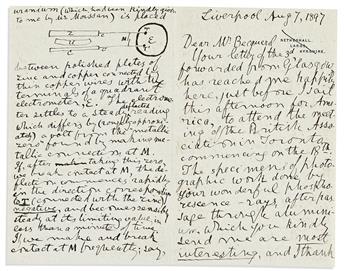 uranium (which had been kindly given
to me by M. Moissan) is placed
Z
U
C
M
E
between polished plates of
zinc and copper connected by
thin copper wires with the
terminals of a quadrant
electrometer, E. The electrome-
ter settles to a steady reading
which differs by (deflected
oppositely)
volt from the metallic
zero found by making me-
tallic connection at M.
If, after making this zero,
we break contact at M the de-
flection commences, rapidly
in the direction correspon-
(connected with the zinc)
negative, and becomes sensibly
steady at its limiting value, in
less than a minute of time.
If we make and break
contact at M frequently, say,
Liverpool Aug 7, 1897
NETHERHALL,
LARGS,
AYRSHIRE.
Dear Mr Becquerel
Your letter of the 3
forwarded from Glasgow
has reached me happily
here, just before I sail
this afternoon for Ame-
rica, to attend the meet-
ing of the British Asso-
ciation in Toronto,
commencing on the 18th.
The specimens of photo-
graphic work done by
your wonderful phospho-
rescence-rays, after pas-
sage through alumi-
um, which you kindly
send me are most
interesting, and I thank